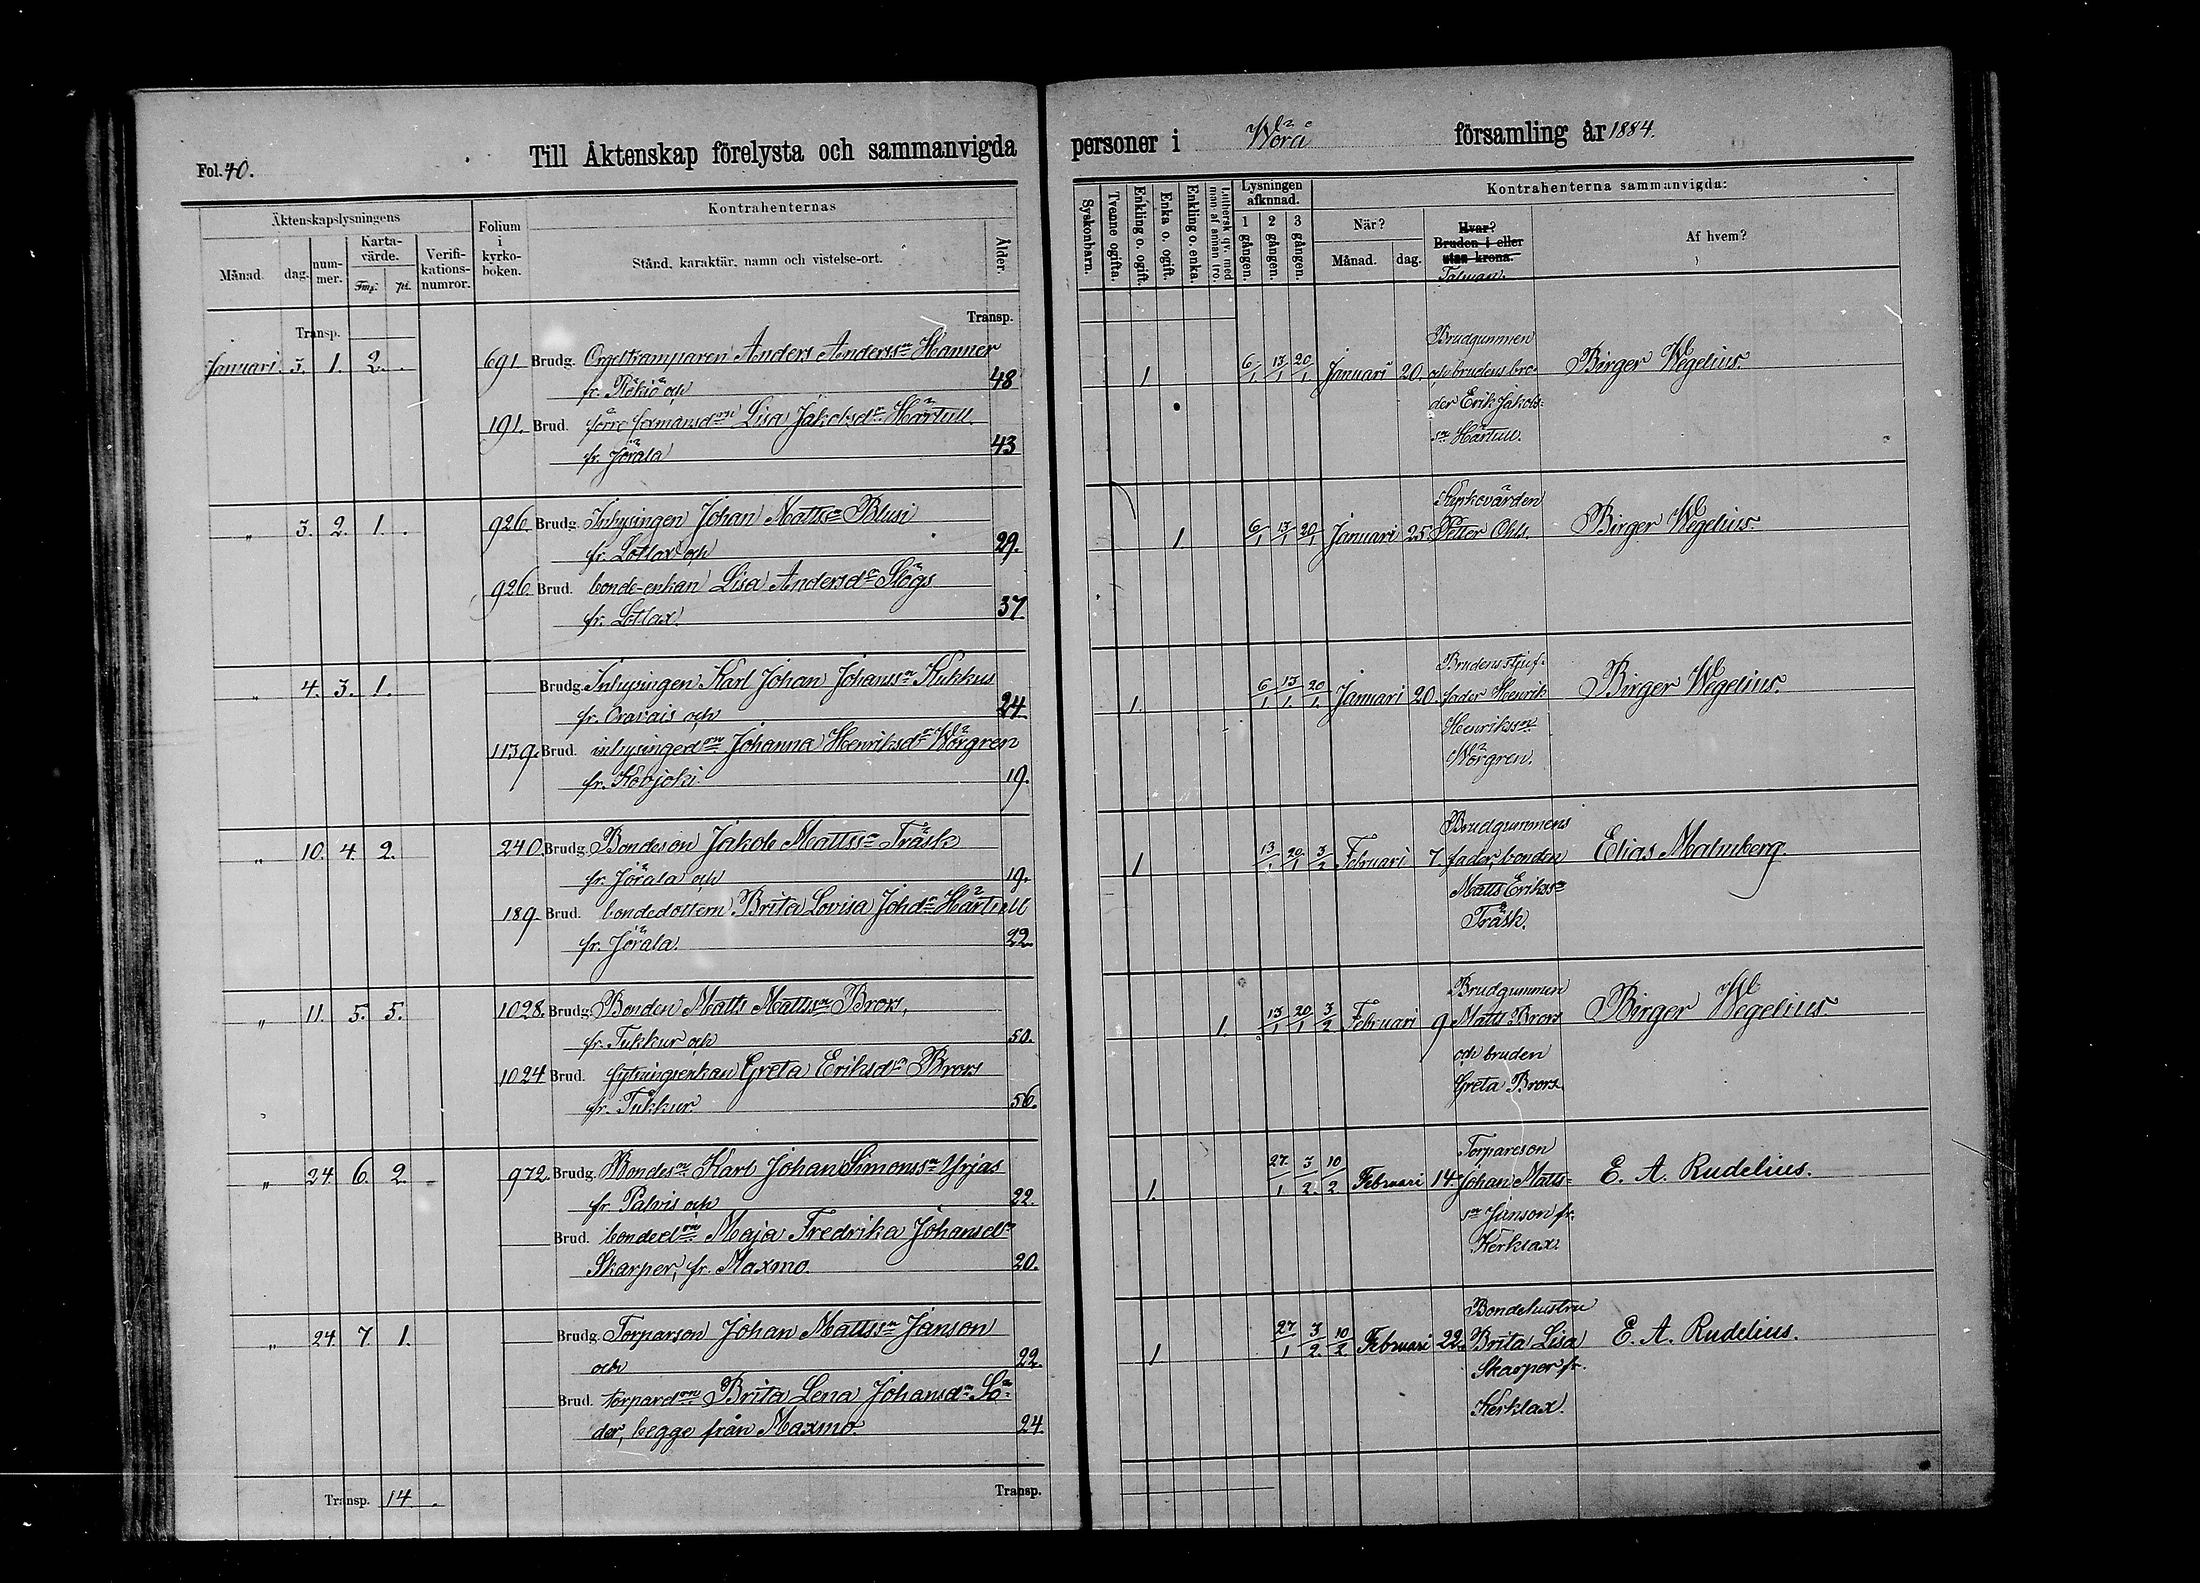 Fol. 40.
Till Äktenskap förelysta och sammanvigda personer i Wörå församling år 1884.
Äktenskapslysningens
Månad. dag. nummer. Kartavärde. Fmk. pi. Verifikationsnumror.
Folium i kyrkoboken.
Kontrahenternas
Stånd, karaktär, namn och vistelse-ort.
Ålder.
Syskonbarn.
Tvenne ogifta.
Enkling o. ogift.
Enka o. ogift.
Enkling o. enka.
Luthersk qv. med mom. af annan tro.
Lysningen afkunnad.
1 gången. 2 gången. 3 gången.
Kontrahenterna sammanvigda:
När?
Månad. dag.
Hvar?
Bruden i eller
utan krona.
Talman.
Af hvem?
Transp. Transp.
Januari 3. 1. 2. 691. Brudg. Orgeltramparen Anders Anderss:n Hanner
fr. Rökiö och 48
191. Brud. förre Lisa Jakobsd:r Härtull
fr. Jörala 43
1 6/1 13/1 20/1 Januari 20.
Brudgummen
och brudens bro-
der Erik Jakobs-
sn Härtull.
Birger Wegelius.
" 3. 2. 1. 926. Brudg. Inhysingen Johan Mattss:n Blusi
fr. Lotlax och 29.
926. Brud. bonde-enkan Lisa Andersd:r Slögs
fr. Lotlax. 37
1. 6/1 13/1 20/1 Januari 25
Kyrkovärden
Petter Ohls.
Birger Wegelius.
" 4. 3. 1. Brudg. Inhysingen Karl Johan Johanss:n Kukkus
fr. Oravais och 24
1139. Brud. inhysinged:rn Johanna Henriksd:r Wörgren
fr. Kovjoki 19.
1. 6/1 13/1 20/1 Januari 20.
Brudens stjuf-
fader Henrik
Henriksson
Wörgren.
Birger Wegelius.
" 10. 4. 2. 240. Brudg. Bondeson Jakob Mattss:n Träsk
fr. Jörala och 19.
189. Brud. bondedottern Brita Lovisa Johd:r Härtull
fr. Jörala. 22.
1 13/1 20/1 3/2 Februari 7.
Brudgummens
fader, bonden
Matts Erikss:n
Träsk.
Elias Malmberg.
" 11. 5. 5. 1028. Brudg. Bonden Matts Mattss:n Brors,
fr. Tukkur och 50.
1024 Brud. sytningsenkan Greta Eriksd:r Brors
fr. Tukkur. 56.
1. 13/1 20/1 3/2 Februari 9
Brudgummen
Matts Brors
och bruden
Greta Brors
Birger Wegelius
" 24 6. 2. 972. Brudg. Bondes:n Karl Johan Simonss:n Yrjas
fr. Palvis och 22.
Brud. bonded:rn Maja Fredrika Johansd:r
Skarper, fr. Maxmo. 20.
1. 27/1 3/2 10/2 Februari 14.
Torpareson
Johan Matts-
sn Janson fr.
Kerklax.
E. A. Rudelius.
" 24. 7. 1. Brudg. Torparson Johan Mattss:n Janson
och 22.
Brud. torpard:rn Brita Lena Johansd:r Sö-
der, begge från Maxmo. 24.
1 27/1 3/2 10/2 Februari 22.
Bondehustru
Brita Lisa
Skarper fr.
Kerklax.
E. A. Rudelius.
Transp. 14 Transp.